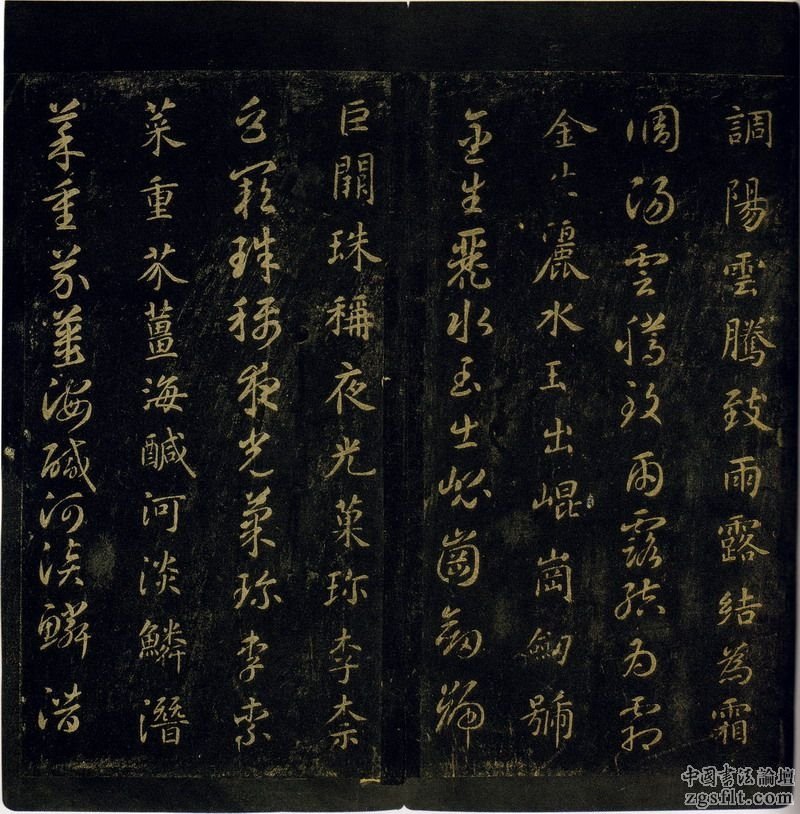 調陽雲騰致雨露結為霜
調陽雲騰致雨露結為霜
金生麗水玉出崐崗劒號
金生麗水玉出崐崗劒號
巨闕珠稱夜光菓珍李柰
巨闕珠稱夜光菓珍李柰
菜重芥薑海醎河淡鱗潛
菜重芥薑海醎河淡鱗潛
中國书法論壇
zgsflt.com